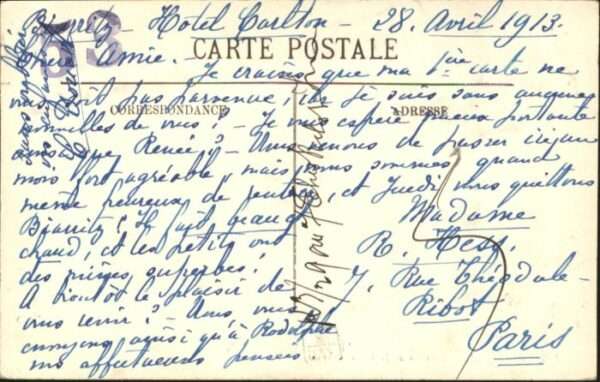 Biarritz - Hotel Carlton - 28 Avril 1913.
63
CARTE POSTALE
Chère Amie. -
Je crains que ma 1ère carte ne
vous soit pas parvenue, car je suis sans aucunes
CORRESPONDANCE
ADRESSE
nouvelles de vous! - Je vous espère mieux portante
ainsi que Renée? - Nous venons de passer ici, un
mois fort agréable, mais nous sommes quand
même heureux de rentrer, et Jeudi nous quittons
Biarritz! Il fait
chaud, et les petits ont
des mines superbes!
A bientôt le plaisir de
vous revoir? - Nous vous
envoyons ainsi qu'à Rodolphe
nos affectueuses pensées.
Madame
R. Hess.
7, Rue Théodule-
Ribot
Paris